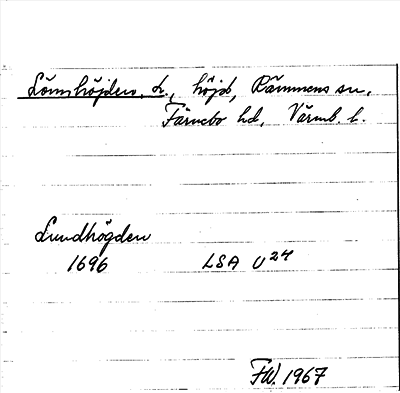 Lömshöjden, k., höjd, Rämmens sn,
Färnebo hd, Värml. l.
Lundhögden
1696 LSA U24
FW. 1967